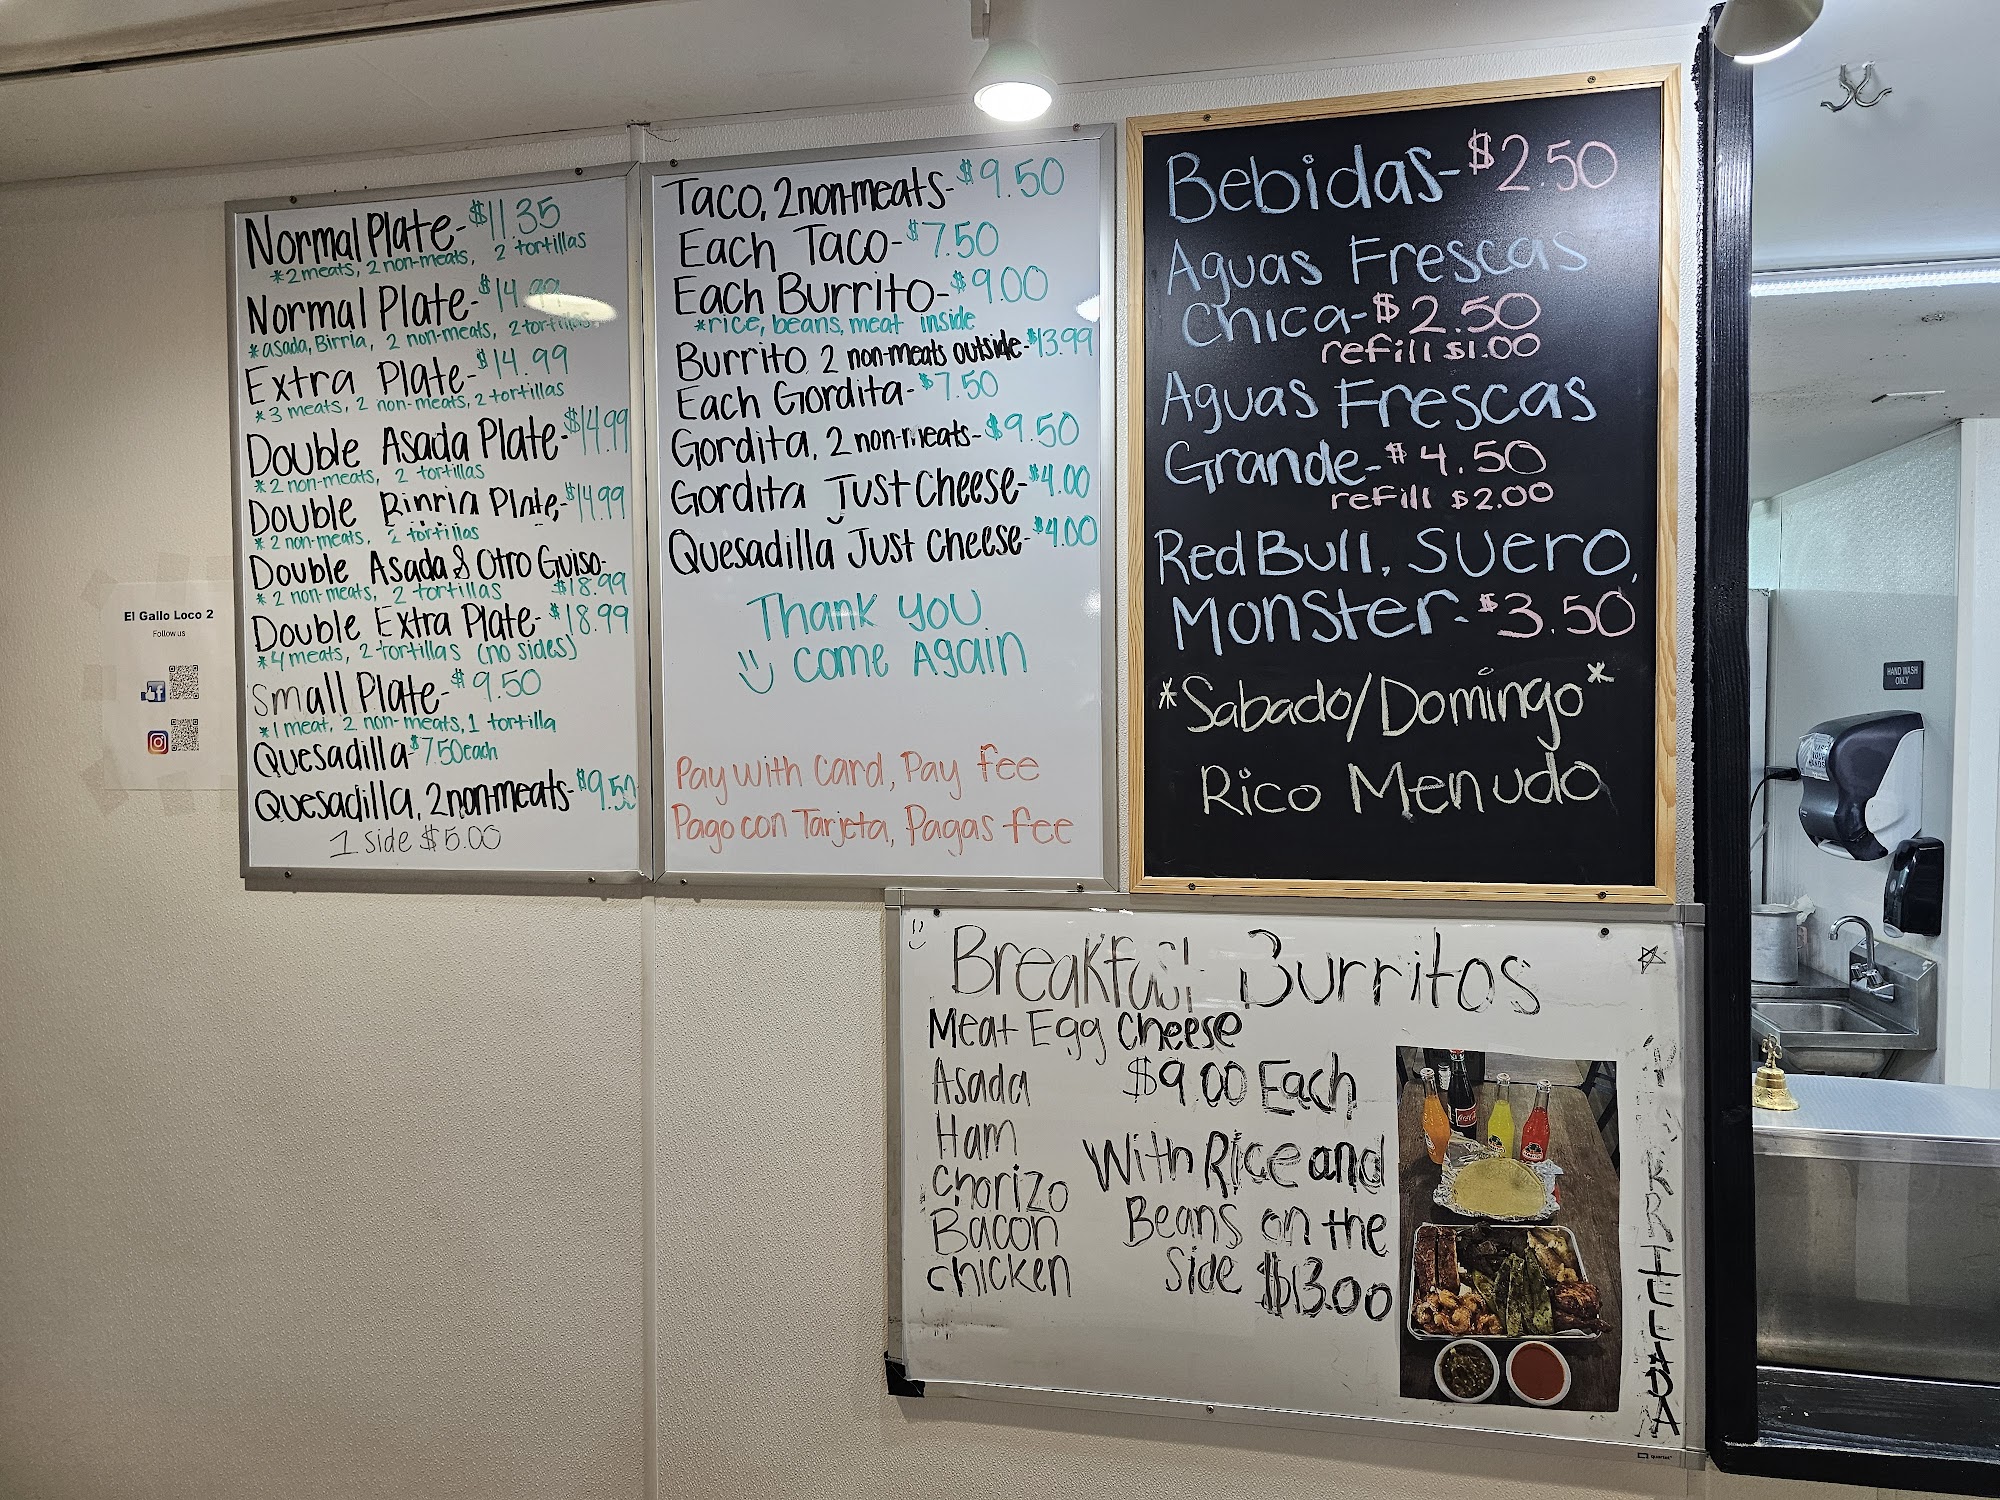 Normal Plate- $11.35
*2 meats, 2 non-meats, 2 tortillas
Normal Plate- $14.99
*asada, Birria, 2 non-meats, 2 tortillas
Extra Plate- $14.99
*3 meats, 2 non-meats, 2 tortillas
Double Asada Plate- $14.99
*2 non-meats, 2 tortillas
Double Birria Plate- $14.99
*2 non-meats, 2 tortillas
Double Asada & Otro Guiso-
*2 non-meats, 2 tortillas $18.99
Double Extra Plate- $18.99
*4 meats, 2 tortillas (no sides)
Small Plate- $9.50
*1 meat, 2 non-meats, 1 tortilla
Quesadilla- $7.50 each
Quesadilla, 2 non-meats- $9.50
1 side $5.00
Taco, 2 non-meats- $9.50
Each Taco- $7.50
Each Burrito- $9.00
*rice, beans, meat inside
Burrito 2 non-meats outside- $13.99
Each Gordita- $7.50
Gordita, 2 non-meats- $9.50
Gordita Just Cheese- $4.00
Quesadilla Just Cheese- $4.00
Thank you
Come Again
Pay with Card, Pay fee
Pago con Tarjeta, Pagas fee
Bebidas- $2.50
Aguas Frescas
Chica- $2.50
refill $1.00
Aguas Frescas
Grande- $4.50
refill $2.00
Red Bull, Suero,
Monster- $3.50
*Sabado/Domingo*
Rico Menudo
El Gallo Loco 2
Follow us
Breakfast Burritos
Meat Egg Cheese
Asada
Ham
Chorizo
Bacon
Chicken
$9.00 Each
With Rice and
Beans on the
Side $13.00
HAND WASH
ONLY